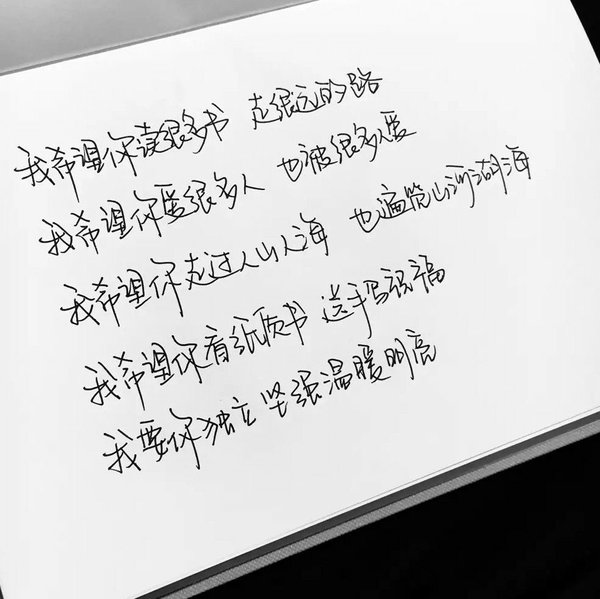 我希望你读很多书 走很远的路
我希望你爱很多人 也被很多人爱
我希望你走过人山人海 也遍览山河湖海
我希望你看纸质书 送手写祝福
我要你独立坚强温暖明亮